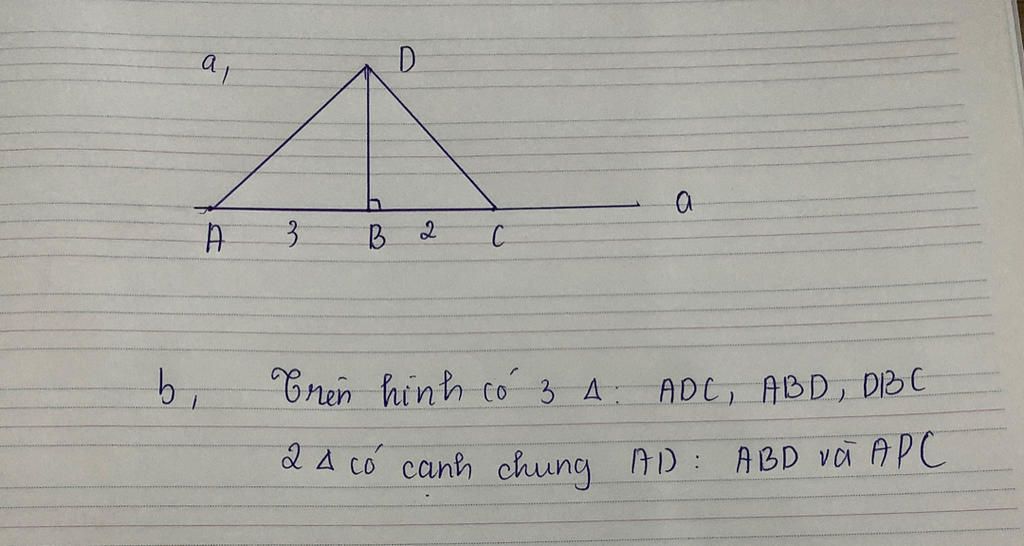 a,
D
a
A 3 B 2 C
b, Trên hình có 3 Δ: ADC, ABD, DBC
2 Δ có cạnh chung AD: ABD và ADC